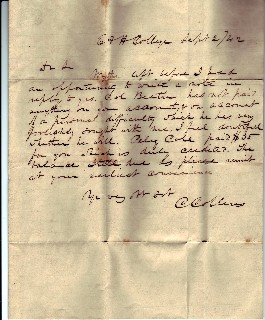 College Sept 2/42
Dr Sir
left before I had
an opportunity to write a note in
reply to yrs. Col has not paid
anything on your account, on account
of a personal difficulty which he has very
foolishly sought with me. I feel doubtful
whether he will. Paley Coll paid $35
for you which is duly credited. The
balance still due his please remit
at your earliest convenience
Yr very
C Collins